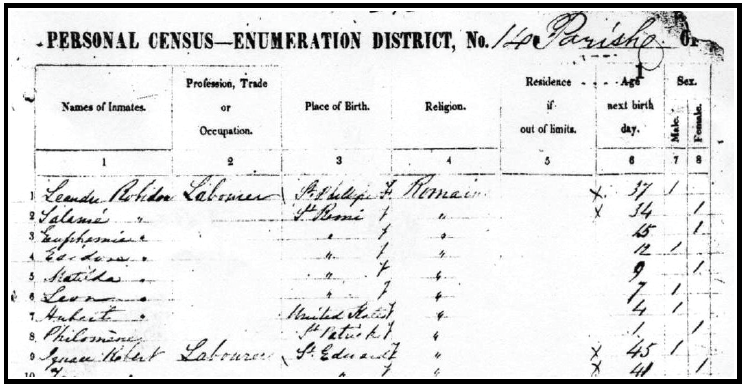 PERSONAL CENSUS—ENUMERATION DISTRICT, No. 14 Parish Of
Names of Inmates. Profession, Trade or Occupation. Place of Birth. Religion. Residence if out of limits. Age next birth day. Sex. Male. Female.
1 2 3 4 5 6 7 8
1 Leandre Robidou Labourer St. Philippe F Romain x 37 1
2 Salomé " St. Remi F " x 34 1
3 Euphemie " " F " 15 1
4 Esidore " " F " 12 1
5 Matilda " " F " 9 1
6 Leon " " F " 7 1
7 Hubert " United States F " 4 1
8 Philomène St. Patrick F " 1 1
9 Ignace Hobert Labourer St. Edward F " x 45 1
10 " F " x 40 1